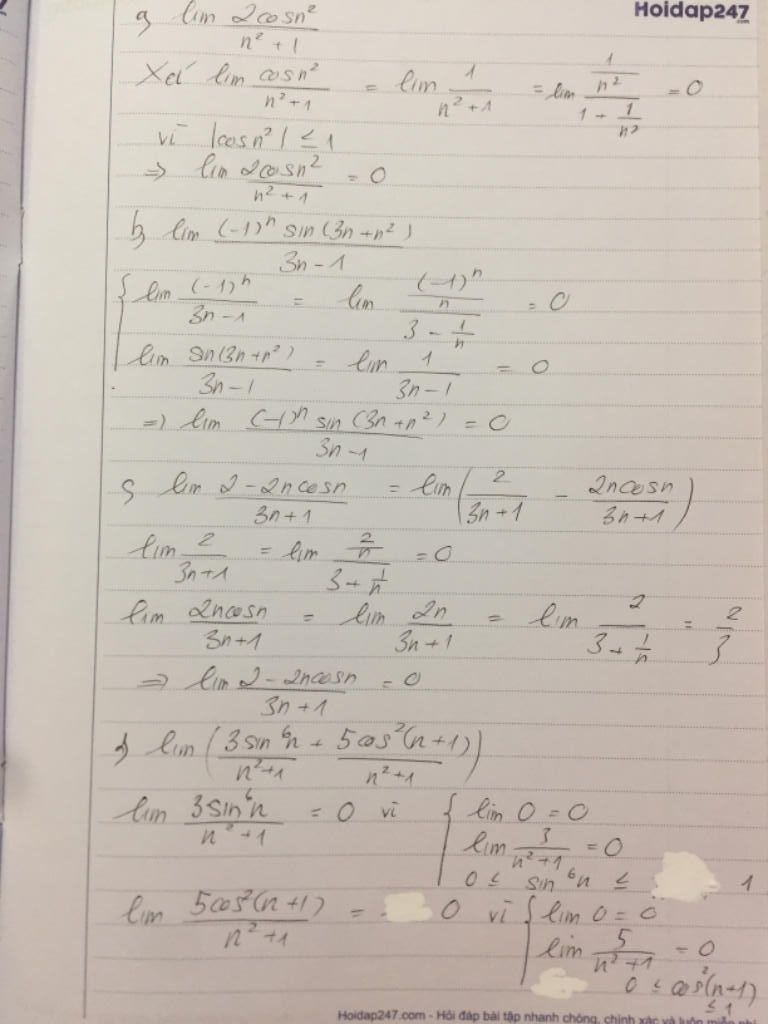 Hoidap247
.com
a, lim 2cosn² / (n² + 1)
Xét lim cosn² / (n²+1) = lim 1 / (n²+1) = lim (1/n²) / (1 + 1/n²) = 0
vì |cosn²| ≤ 1
=> lim 2cosn² / (n²+1) = 0
b, lim (-1)ⁿ sin(3n+n²) / (3n-1)
{ lim (-1)ⁿ / (3n-1) = lim ((-1)ⁿ/n) / (3 - 1/n) = 0
lim sin(3n+n²) / (3n-1) = lim 1 / (3n-1) = 0
=> lim (-1)ⁿ sin(3n+n²) / (3n-1) = 0
c, lim (2 - 2ncosn) / (3n+1) = lim(2 / (3n+1) - 2ncosn / (3n+1))
lim 2 / (3n+1) = lim (2/n) / (3 + 1/n) = 0
lim 2ncosn / (3n+1) = lim 2n / (3n+1) = lim 2 / (3 + 1/n) = 2/3
=> lim (2 - 2ncosn) / (3n+1) = 0
d, lim(3sin⁶n / (n²+1) + 5cos²(n+1) / (n²+1))
lim 3sin⁶n / (n²+1) = 0 vì { lim 0 = 0
lim 3 / (n²+1) = 0
0 ≤ sin⁶n ≤ 1
lim 5cos²(n+1) / (n²+1) = 0 vì { lim 0 = 0
lim 5 / (n²+1) = 0
0 ≤ cos²(n+1)
≤ 1
Hoidap247.com - Hỏi đáp bài tập nhanh chóng, chính xác và luôn miễn phí